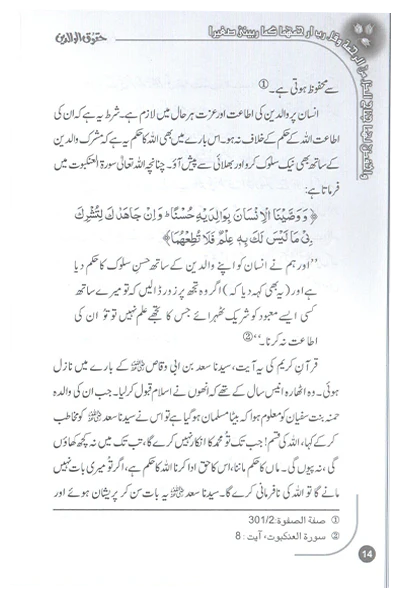 حقوق الوالدین
سے محفوظ ہوتی ہے۔ ①
انسان پر والدین کی اطاعت اور عزت ہر حال میں لازم ہے۔ شرط یہ ہے کہ ان کی
اطاعت اللہ کے حکم کے خلاف نہ ہو۔ اس بارے میں بھی اللہ کا حکم یہ ہے کہ مشرک والدین
کے ساتھ بھی نیک سلوک کرو اور بھلائی سے پیش آؤ۔ چنانچہ اللہ تعالیٰ سورۃ العنکبوت میں
فرماتا ہے:
﴿ وَوَصَّيْنَا الْاِنْسَانَ بِوَالِدَيْهِ حُسْنًا ۭ وَاِنْ جَاهَدٰكَ لِتُشْرِكَ
بِيْ مَا لَيْسَ لَكَ بِهٖ عِلْمٌ فَلَا تُطِعْهُمَا﴾
’’اور ہم نے انسان کو اپنے والدین کے ساتھ حسنِ سلوک کا حکم دیا
ہے اور (یہ بھی کہہ دیا کہ) اگر وہ تجھ پر زور ڈالیں کہ تو میرے ساتھ
کسی ایسے معبود کو شریک ٹھہرائے جس کا تجھے علم نہیں تو تُو ان کی
اطاعت نہ کرنا۔‘‘ ②
قرآنِ کریم کی یہ آیت، سیدنا سعد بن ابی وقاص ﷛ کے بارے میں نازل
ہوئی۔ وہ اٹھارہ انیس سال کے تھے کہ انھوں نے اسلام قبول کر لیا۔ جب ان کی والدہ
حمنہ بنت سفیان کو معلوم ہوا کہ بیٹا مسلمان ہو گیا ہے تو اس نے سیدنا سعد ﷛ کو مخاطب
کر کے کہا، اللہ کی قسم! جب تک تُو محمد کا انکار نہیں کرے گا، تب تک میں نہ کچھ کھاؤں
گی، نہ پیوں گی۔ ماں کا حکم ماننا، اس کا حق ادا کرنا اللہ کا حکم ہے، اگر تُو میری بات نہیں
مانے گا تو اللہ کی نافرمانی کرے گا۔ سیدنا سعد ﷛ یہ بات سن کر پریشان ہوئے اور
① صفة الصفوة: 301/2
② سورة العنكبوت، آیت: 8
14